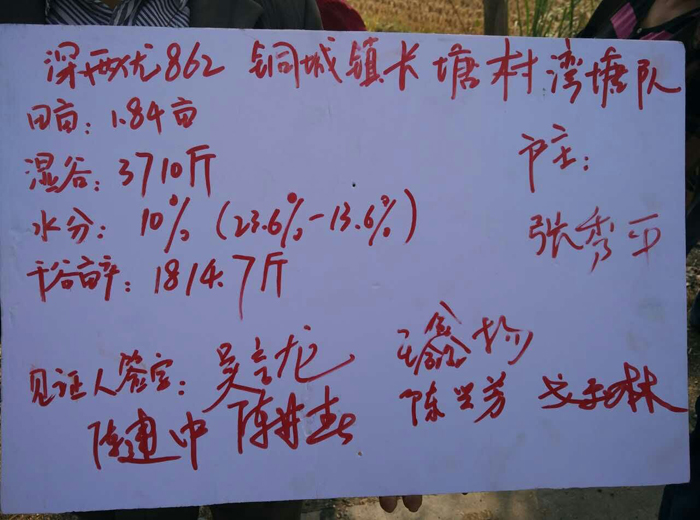 深两优862 铜城镇长塘村湾塘队
田亩:1.84亩
湿谷:3710斤
户主:
水分:10% (23.6%-13.6%)
张秀平
干谷亩产:1814.7斤
见证人签字:吴言龙
陈建中 陈兴芳